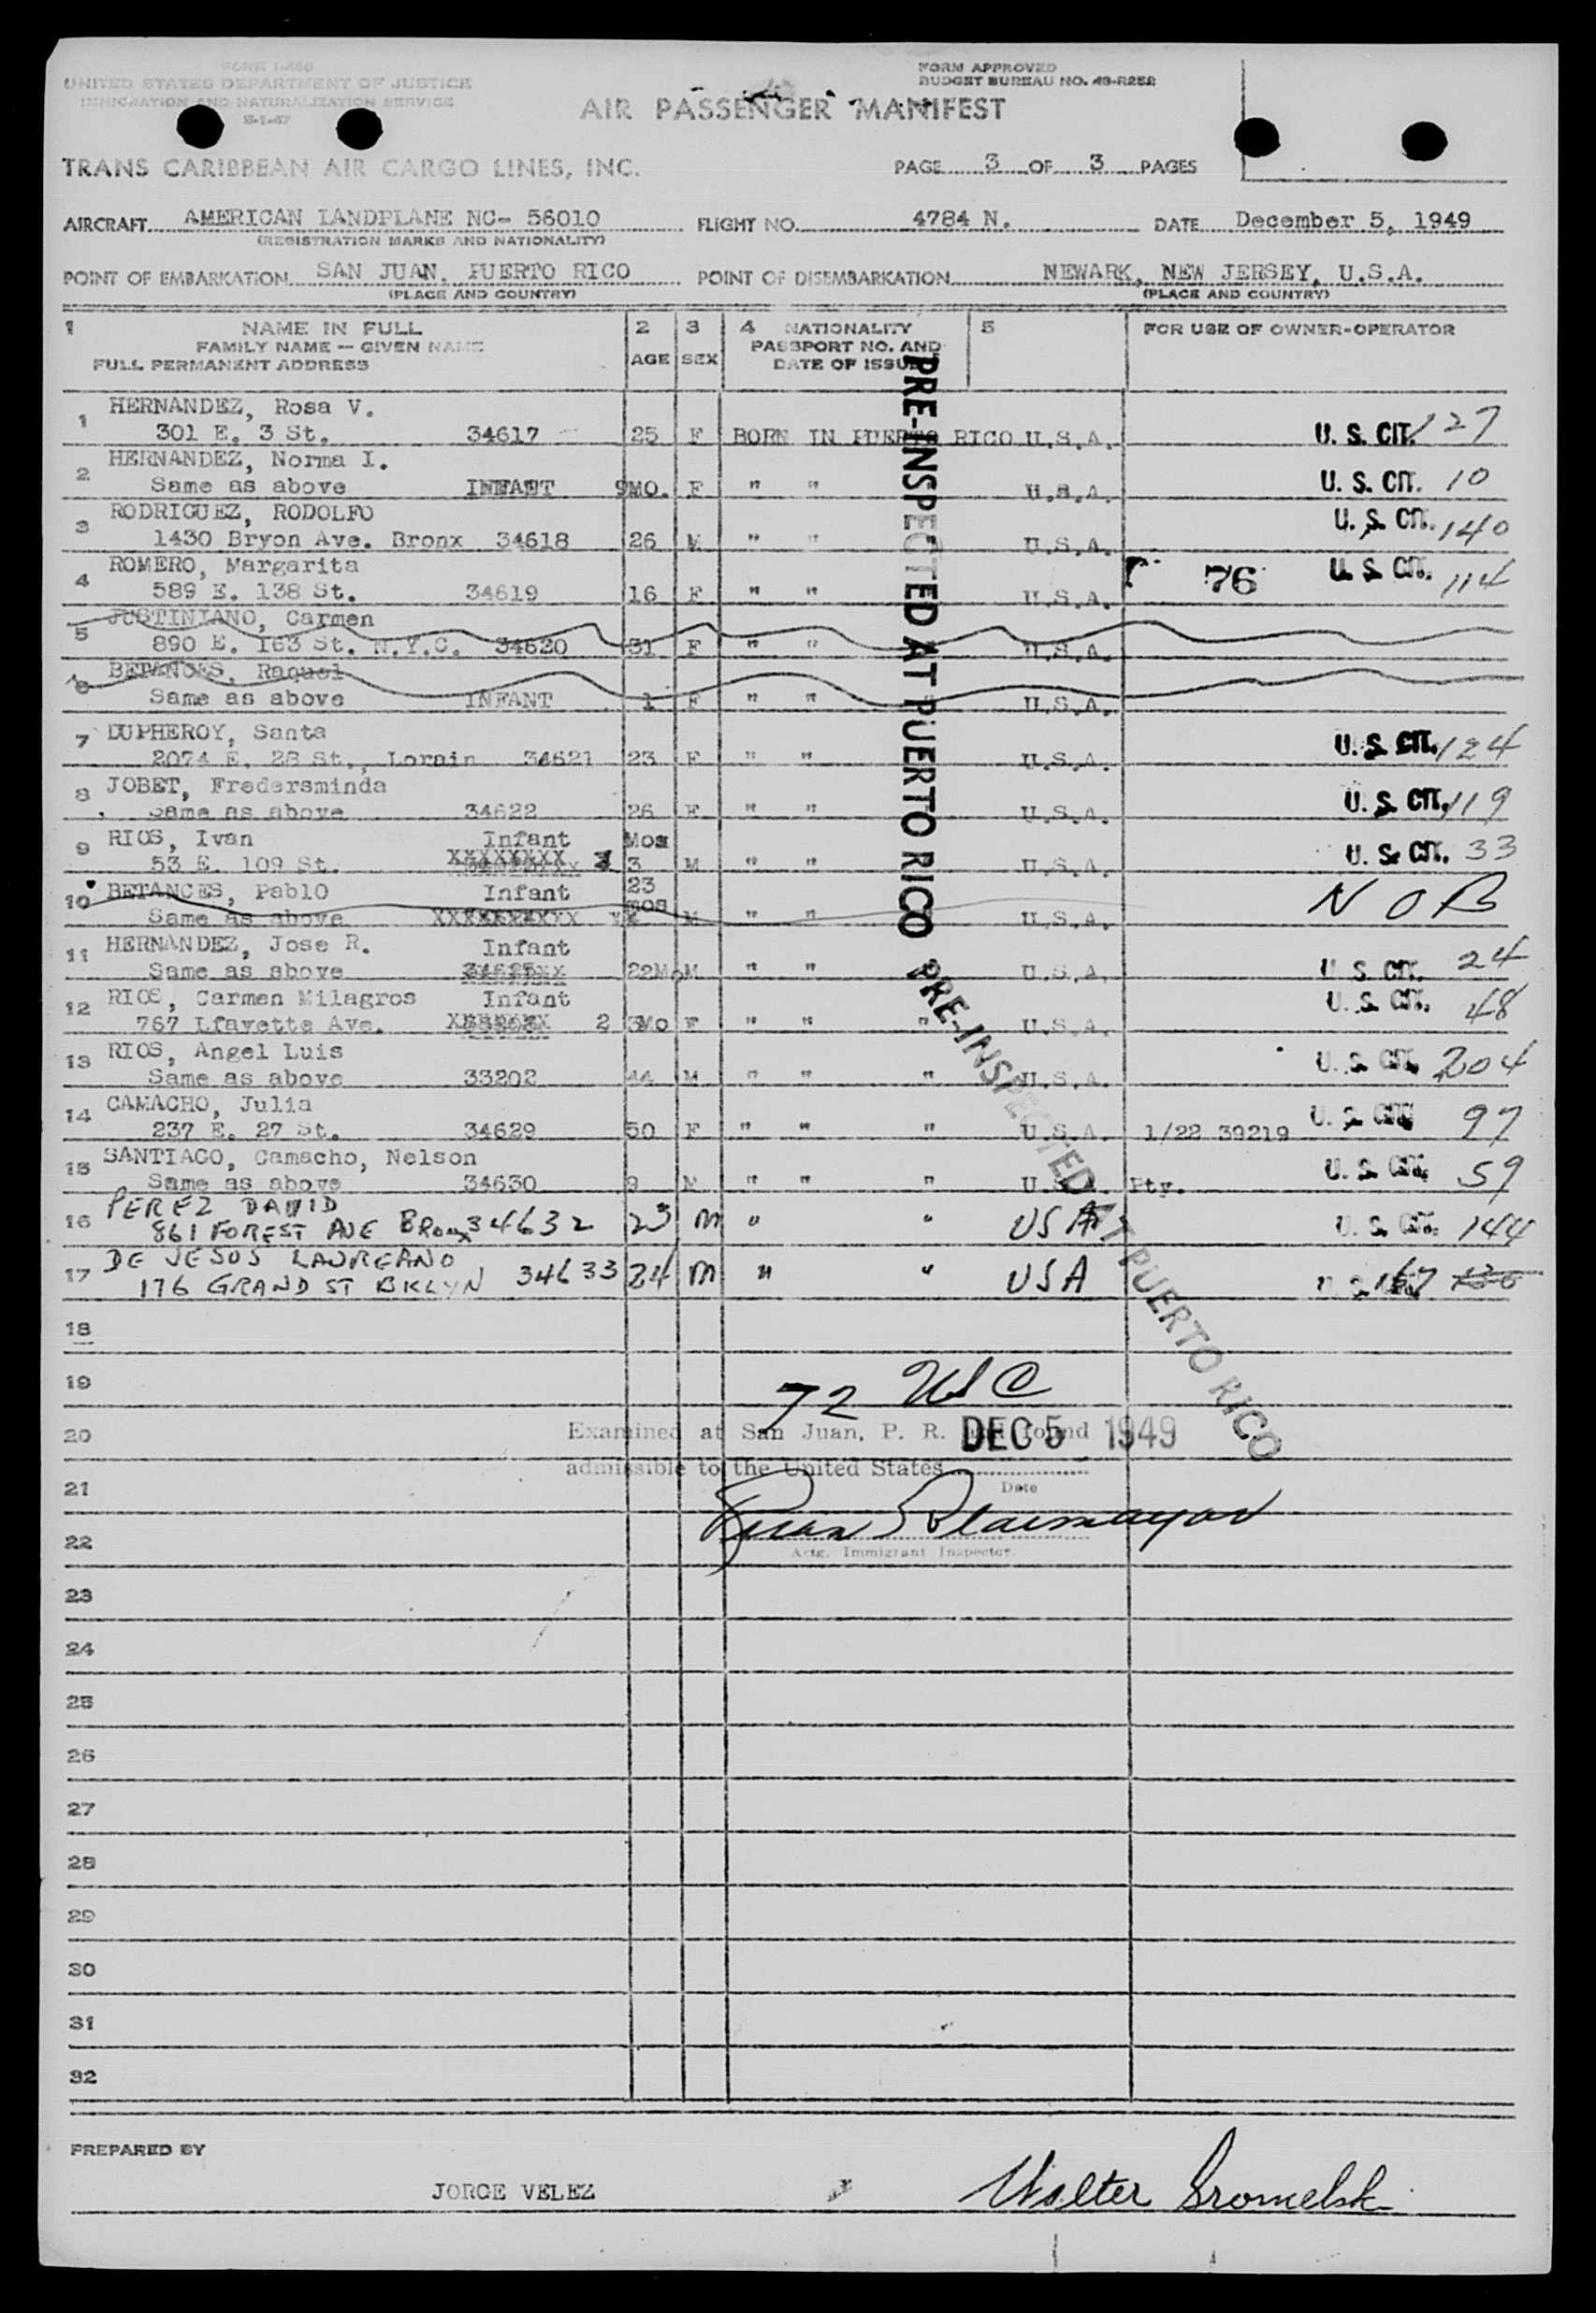 FORM I-466
UNITED STATES DEPARTMENT OF JUSTICE
IMMIGRATION AND NATURALIZATION SERVICE
FORM APPROVED
BUDGET BUREAU NO. 43-R252
AIR PASSENGER MANIFEST
TRANS CARIBBEAN AIR CARGO LINES, INC.
PAGE 3 OF 3 PAGES
AIRCRAFT AMERICAN LANDPLANE NC- 56010 FLIGHT NO. 4784 N. DATE December 5, 1949
(REGISTRATION MARKS AND NATIONALITY)
POINT OF EMBARKATION SAN JUAN, PUERTO RICO POINT OF DISEMBARKATION NEWARK, NEW JERSEY, U.S.A.
(PLACE AND COUNTRY) (PLACE AND COUNTRY)
1 NAME IN FULL 2 3 4 NATIONALITY 5 FOR USE OF OWNER-OPERATOR
FAMILY NAME — GIVEN NAME PASSPORT NO. AND
FULL PERMANENT ADDRESS AGE SEX DATE OF ISSUE
1 HERNANDEZ, Rosa V.
301 E. 3 St. 34617 25 F BORN IN PUERTO RICO U.S.A. U. S. CIT. 127
2 HERNANDEZ, Norma I.
Same as above INFANT 9MO. F " " U.S.A. U. S. CIT. 10
3 RODRIGUEZ, RODOLFO
1430 Bryon Ave. Bronx 34618 26 M " " U.S.A. U. S. CIT. 140
4 ROMERO, Margarita
589 E. 138 St. 34619 16 F " " U.S.A. 76 U. S. CIT. 114
5 JUSTINIANO, Carmen
890 E. 163 St. N.Y.C. 34620 31 F " " U.S.A.
6 BETANCES, Raquel
Same as above INFANT 1 F " " U.S.A.
7 DUPHEROY, Santa
2074 E. 28 St., Lorain 34621 23 F " " U.S.A. U. S. CIT. 124
8 JOBET, Fredersminda
Same as above 34622 26 F " " U.S.A. U. S. CIT. 119
9 RIOS, Ivan Infant Mos
53 E. 109 St. XXXXXXXX 3 M " " U.S.A. U. S. CIT. 33
10 BETANCES, Pablo Infant 23 mos
Same as above XXXXXXXXXX M " " U.S.A. N O B
11 HERNANDEZ, Jose R. Infant
Same as above 22Mo M " " U.S.A. U. S. CIT. 24
12 RIOS, Carmen Milagros Infant
767 Lfayette Ave. 2 Mo F " " " U.S.A. U. S. CIT. 48
13 RIOS, Angel Luis
Same as above 33202 44 M " " " U.S.A. U. S. CIT. 204
14 CAMACHO, Julia
237 E. 27 St. 34629 50 F " " " U.S.A. 1/22 39219 U. S. CIT. 97
15 SANTIAGO, Camacho, Nelson
Same as above 34630 9 M " " " U.S.A. Pty. U. S. CIT. 59
16 PEREZ DAVID
861 FOREST AVE BRonx 34632 23 M " " USA U. S. CIT. 144
17 DE JESUS LAUREANO
176 GRAND ST BKLYN 34633 24 M " " USA 167
PRE-INSPECTED AT PUERTO RICO
PRE-INSPECTED AT PUERTO RICO
18
19
72 USC
20 Examined at San Juan, P. R. and found
DEC 5 1949
admissible to the United States
21 Date
22
Actg. Immigrant Inspector.
23
24
25
26
27
28
29
30
31
32
PREPARED BY
JORGE VELEZ Walter